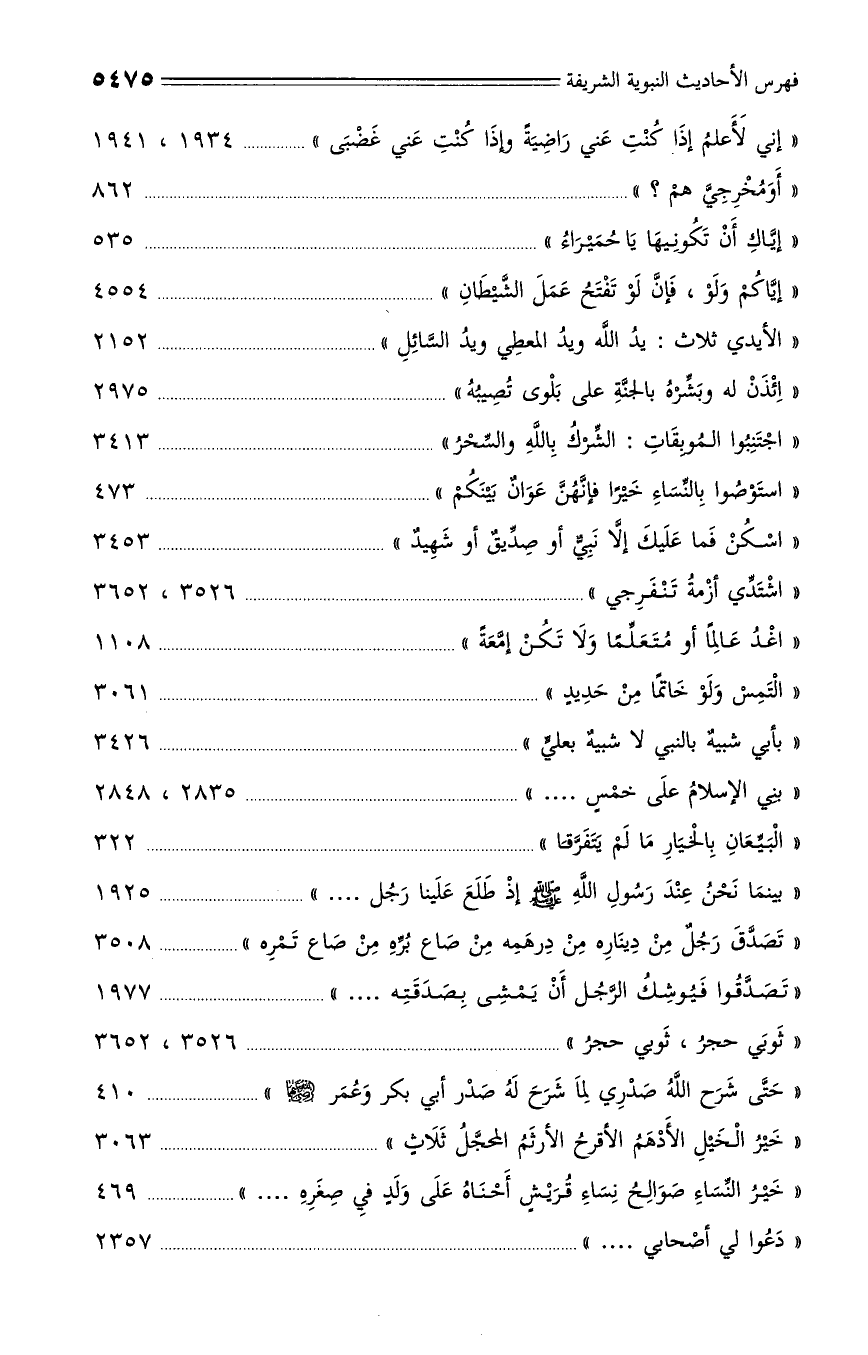 فهرس الأحاديث النبوية الشريفة ٥٤٧٥
« إني لَأَعلمُ إذَا كُنْتِ عَني رَاضِيَةً وإذَا كُنْتِ عَني غَضْبَى » .............. ١٩٣٤ ، ١٩٤١
« أَوَمُخْرِجِيَّ همْ ؟ » .............. ٨٦٢
« إيَّاكِ أَنْ تَكُونِيهَا يَا حُمَيْرَاءُ » .............. ٥٣٥
« إيَّاكُمْ وَلَوْ ، فَإنَّ لَوْ تَفْتَحُ عَمَلَ الشَّيْطَانِ » .............. ٤٥٥٤
« الأيدي ثلاث : يدُ اللَّه ويدُ المعطِي ويدُ السَّائِلِ » .............. ٢١٥٢
« اِئْذَنْ له وبَشِّرْهُ بالجنَّةِ على بَلْوى تُصِيبُهُ » .............. ٢٩٧٥
« اجْتَنِبُوا الـمُوبِقَاتِ : الشِّرْكُ بِاللَّهِ والسِّحْرُ » .............. ٣٤١٣
« استَوْصُوا بِالنِّسَاءِ خَيْرًا فإنَّهُنَّ عَوَانٌ بَيْنَكُمْ » .............. ٤٧٣
« اسْـكُنْ فَما عَلَيكَ إلَّا نَبِيٌّ أو صِدِّيقٌ أو شَهِيدٌ » .............. ٣٤٥٣
« اشْتَدِّي أزْمةُ تَـنْـفَـرِجي » .............. ٣٥٢٦ ، ٣٦٥٢
« اغْـدُ عَـالِمًا أو مُـتَـعَـلِّـمًا وَلَا تَـكُـنْ إمَّعَةً » .............. ١١٠٨
« الْتَمِسْ وَلَوْ خَاتمًا مِنْ حَدِيدٍ » .............. ٣٠٦١
« بأبي شبيهٌ بالنبي لا شبيهٌ بعليٍّ » .............. ٣٤٢٦
« بنِي الإسلامُ علَى خمْسٍ .... » .............. ٢٨٣٥ ، ٢٨٤٨
« الْبَيِّعَانِ بِالْخيَارِ مَا لَمْ يَتَفَرَّقـَا » .............. ٣٢٢
« بينمَا نَحْنُ عِنْدَ رَسُولِ اللَّهِ ﷺ إذْ طَلَعَ عَلَينا رَجُل .... » .............. ١٩٢٥
« تَصَدَّقَ رَجُلٌ مِنْ دِينَارِه مِنْ دِرهَمِه مِنْ صَاع بُرِّهِ مِنْ صَاع تَـمْرِه » .............. ٣٥٠٨
« تَـصَـدَّقُـوا فَـيُوشِـكُ الرَّجُـل أَنْ يَـمْـشِـى بِـصَـدَقَـتِـه .... » .............. ١٩٧٧
« ثَوبَي حجرُ ، ثَوبي حجرُ » .............. ٣٥٢٦ ، ٣٦٥٢
« حَتَّى شَرَح اللَّهُ صَدْرِي لِمَا شَرَحَ لَهُ صَدْر أبي بكر وَعُمَر » .............. ٤١٠
« خَيْرُ الْـخَيْلِ الأَدْهَمُ الأقرحُ الأرثَمُ المحجَّلُ ثَلَاثٍ » .............. ٣٠٦٣
« خَيْـرُ النِّسَاءِ صَوَالِحُ نِسَاءِ قُـرَيْـشٍ أَحْـنَـاهُ عَلَى وَلَدٍ في صِغَرِهِ .... » .............. ٤٦٩
« دَعُوا لي أصْحابي .... » .............. ٢٣٥٧